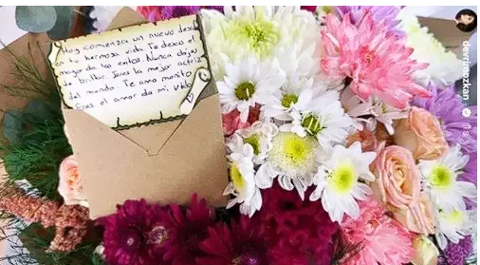 Hoy comienza un nuevo desafio
en tu hermosa vida. Te deseo el
mayor de los exitos. Nunca dejes
de brillar. Sos la mejor actriz
del mundo. Te amo morito
Sos el amor de mi vida
devrimozkan